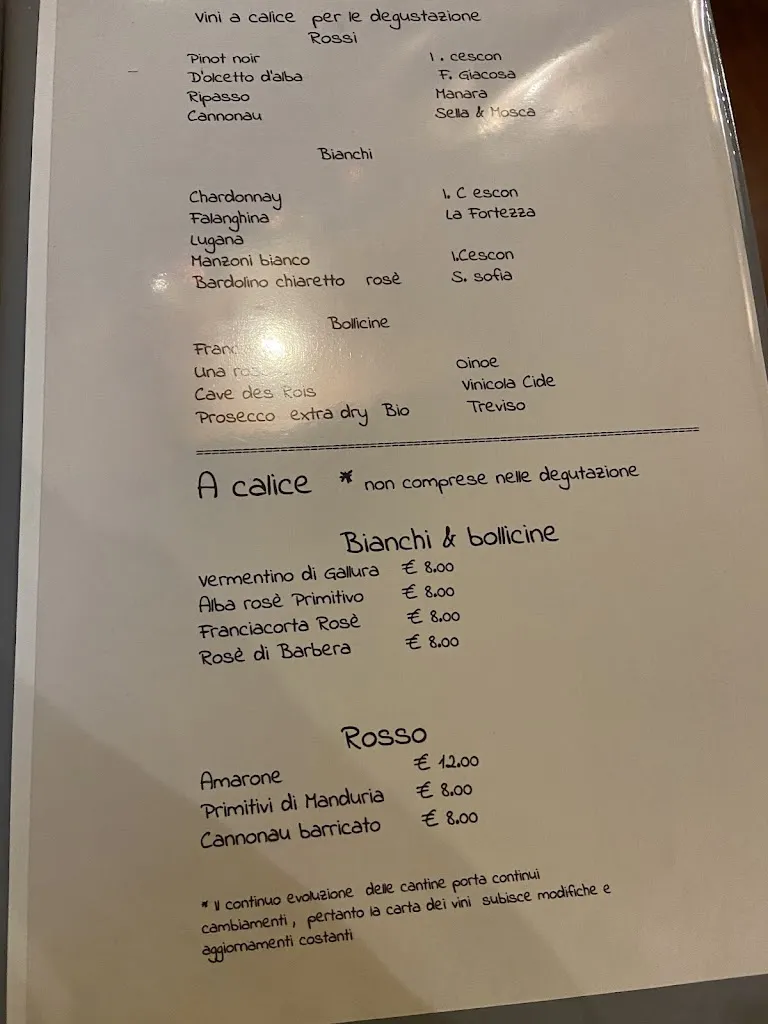 Vini a calice per le degustazione
Rossi
Pinot noir I. cescon
D'olcetto d'alba F. Giacosa
Ripasso Manara
Cannonau Sella & Mosca
Bianchi
Chardonnay I. C escon
Falanghina La Fortezza
Lugana
Manzoni bianco I.Cescon
Bardolino chiaretto rosè S. sofia
Bollicine
una Oinoe
Cave des Rois Vinicola Cide
Prosecco extra dry Bio Treviso
A calice * non comprese nelle degutazione
Bianchi & bollicine
Vermentino di Gallura € 8.00
Alba rosè Primitivo € 8.00
Franciacorta Rosè € 8.00
Rosè di Barbera € 8.00
Rosso
Amarone € 12.00
Primitivi di Manduria € 8.00
Cannonau barricato € 8.00
* Il continuo evoluzione delle cantine porta continui
cambiamenti, pertanto la carta dei vini subisce modifiche e
aggiornamenti costanti